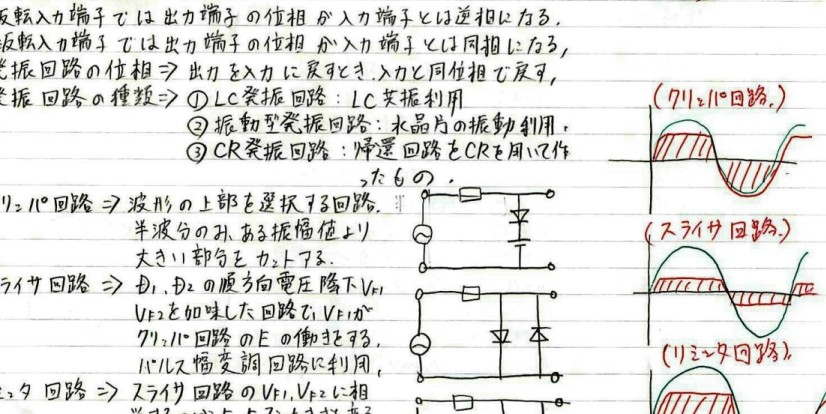 反転入力端子では出力端子の位相が入力端子とは逆相になる。
反転入力端子では出力端子の位相が入力端子とは同相になる,
発振回路の位相⇒ 出力を入力に戻すとき、入力と同位相で戻す,
発振回路の種類⇒ ①LC発振回路：LC共振利用
②振動型発振回路：水晶片の振動利用.
③CR発振回路：帰還回路をCRを用いて作
ったもの.
リッパ回路⇒ 波形の上部を選択する回路.
半波分のみ、ある振幅値より
大きい部分をカットする.
ライサ回路⇒ D1、D2の順方向電圧降下VF1
VF2を加味した回路で、VF1が
クリッパ回路のEの働きをする,
パルス幅変調回路に利用,
ミッタ回路⇒ スライサ回路のVF1,VF2に相
(クリッパ回路.)
(スライサ回路.)
(リミッタ回路).